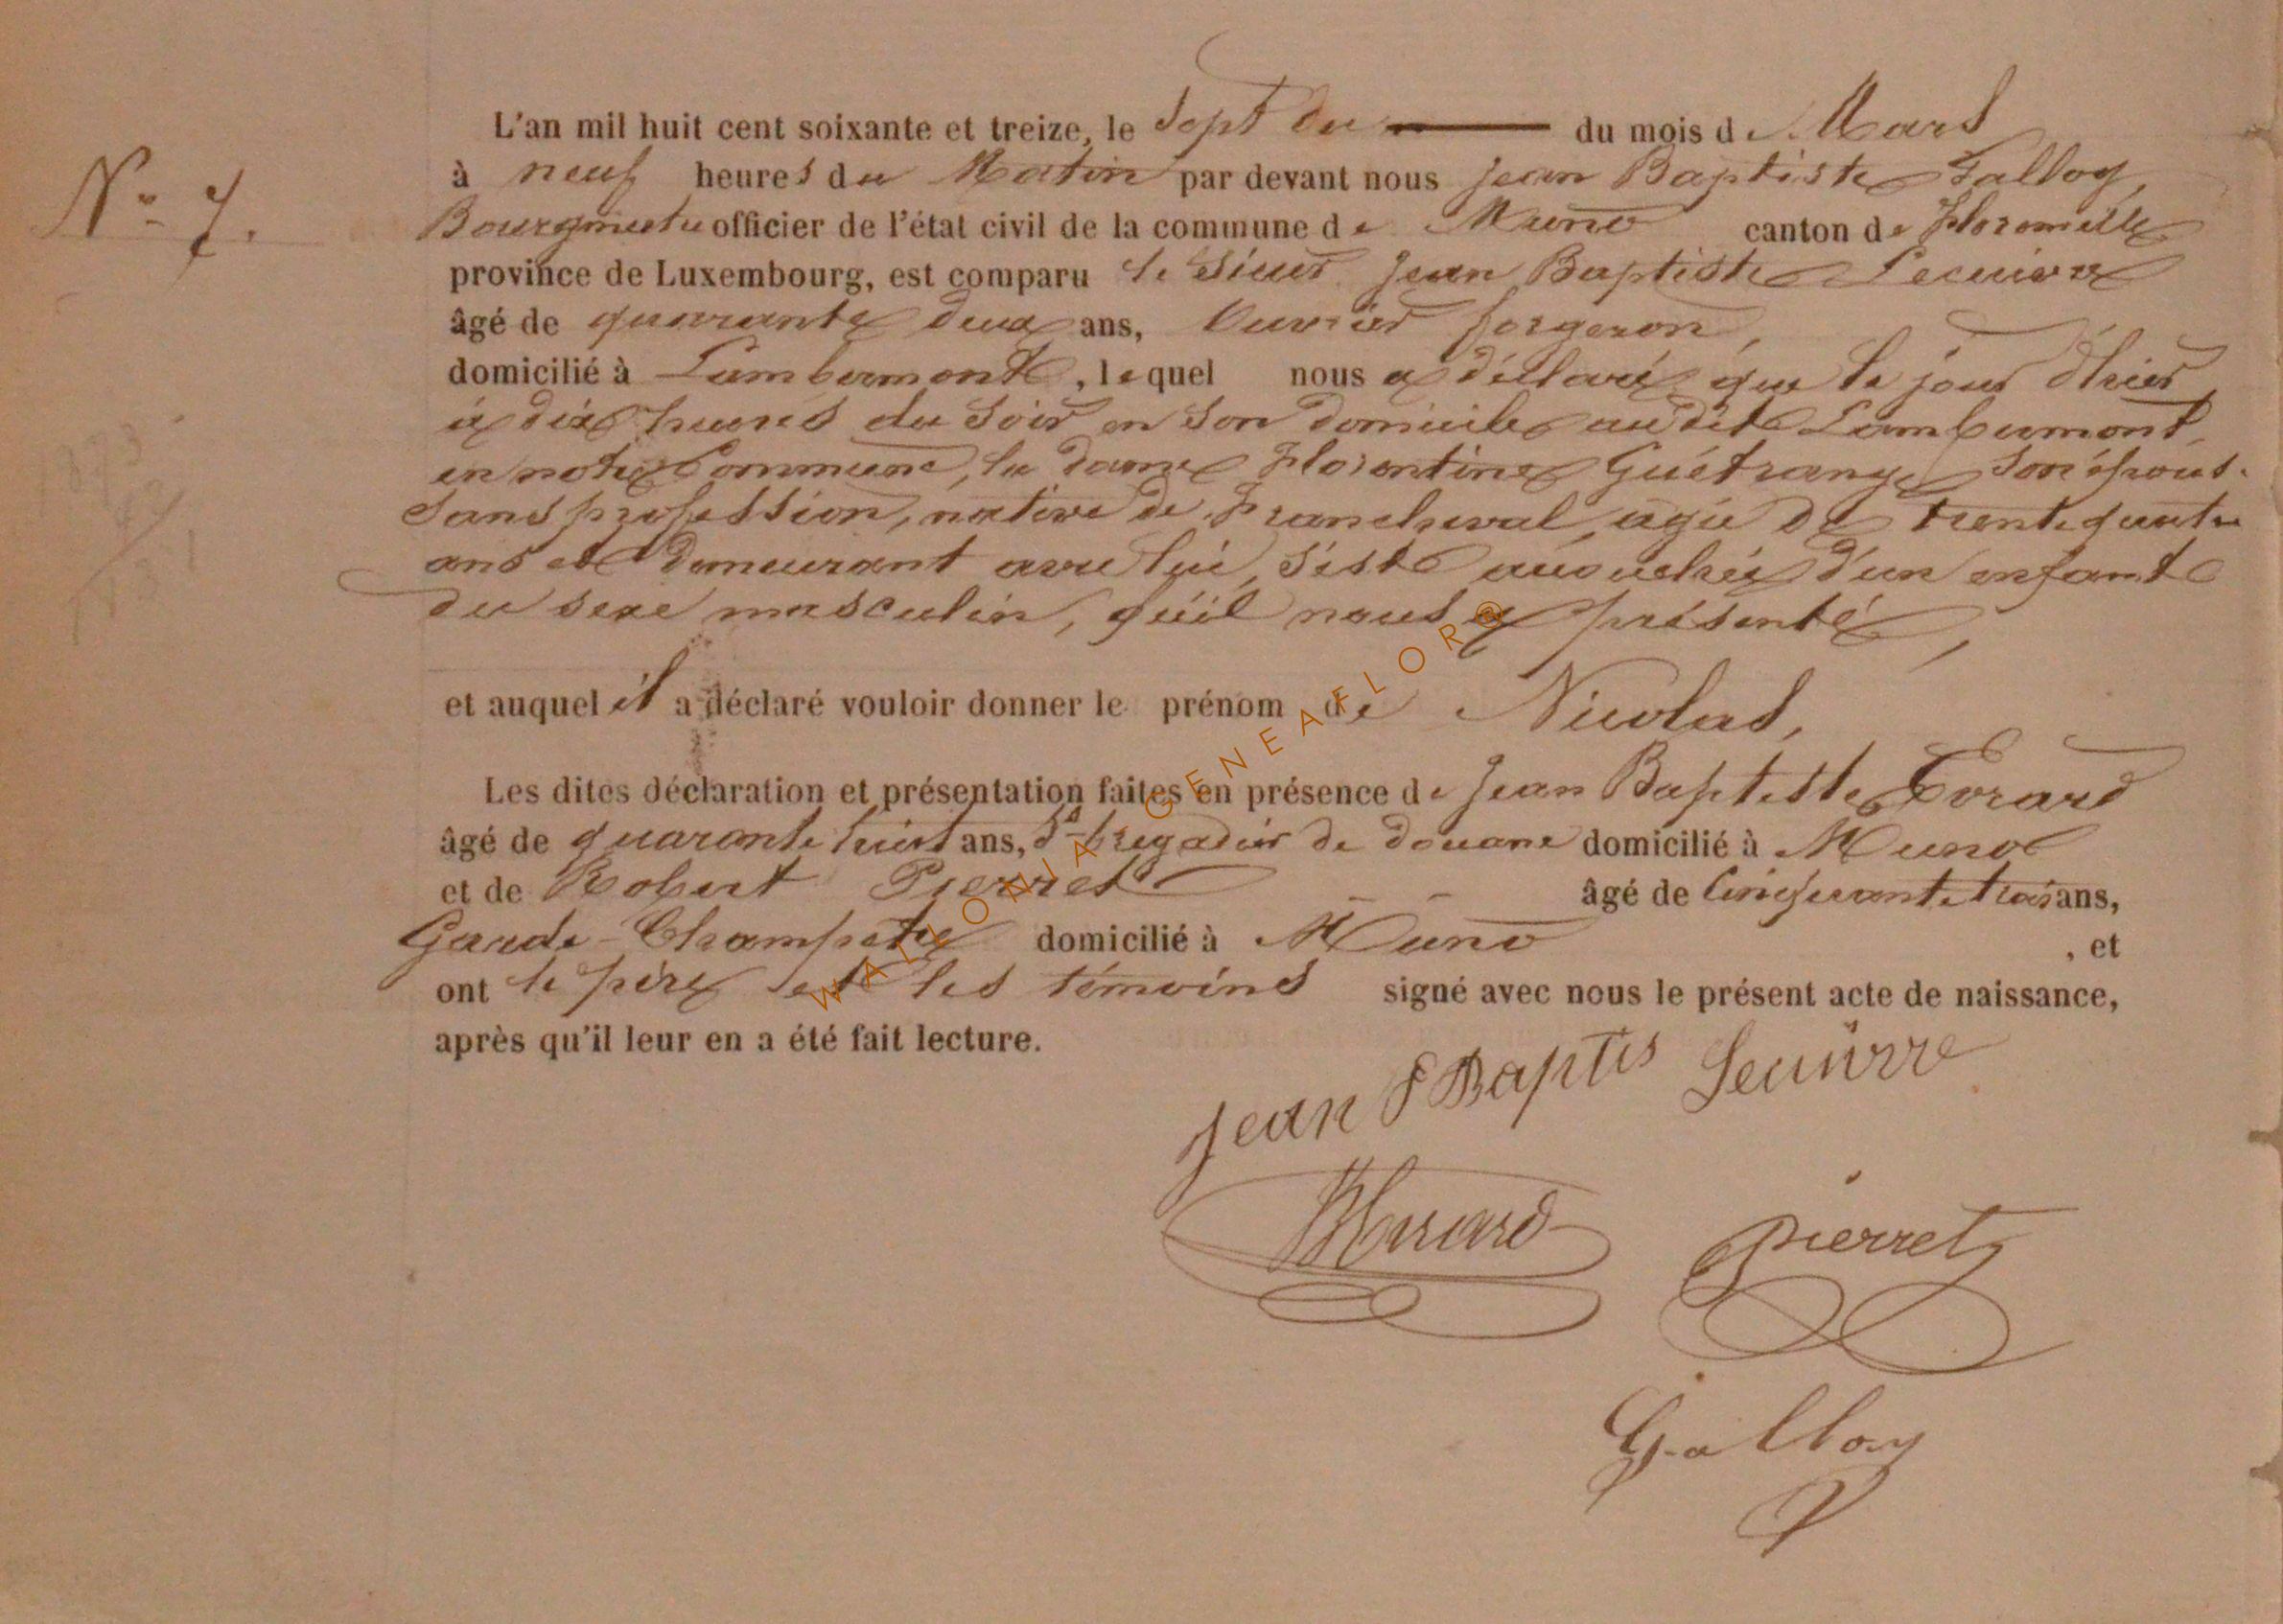 N° 7.
L'an mil huit cent soixante et treize, le Sept du du mois de Mars
à neuf heures du Matin par devant nous Jean Baptiste Galloy,
Bourgmestre officier de l'état civil de la commune de Muno canton de Florenville
province de Luxembourg, est comparu le Sieur Jean Baptiste Lecuivre
âgé de quarante deux ans, Ouvrier forgeron,
domicilié à Lambermont, lequel nous a déclaré que le jour d'hier
à dix heures du Soir en Son domicile audit Lambermont
en notre Commune, la dame Florentine Guétrange Son épouse
Sans profession, native de Francheval, agée de trente quatre
ans et demeurant avec lui, S'est accouchée d'un enfant
du sexe masculin, qu'il nous a présenté,
et auquel il a déclaré vouloir donner le prénom de Nicolas,
Les dites déclaration et présentation faites en présence de Jean Baptiste Evrard
âgé de quarante huit ans, Ss brigadier de douane domicilié à Muno
et de Robert Pierret âgé de Cinquante trois ans,
Garde-Champêtre domicilié à Muno, et
ont le père et les témoins signé avec nous le présent acte de naissance,
après qu'il leur en a été fait lecture.
Jean Baptis
Pierret
Galloy
WALLONIA GENEAFLOR®